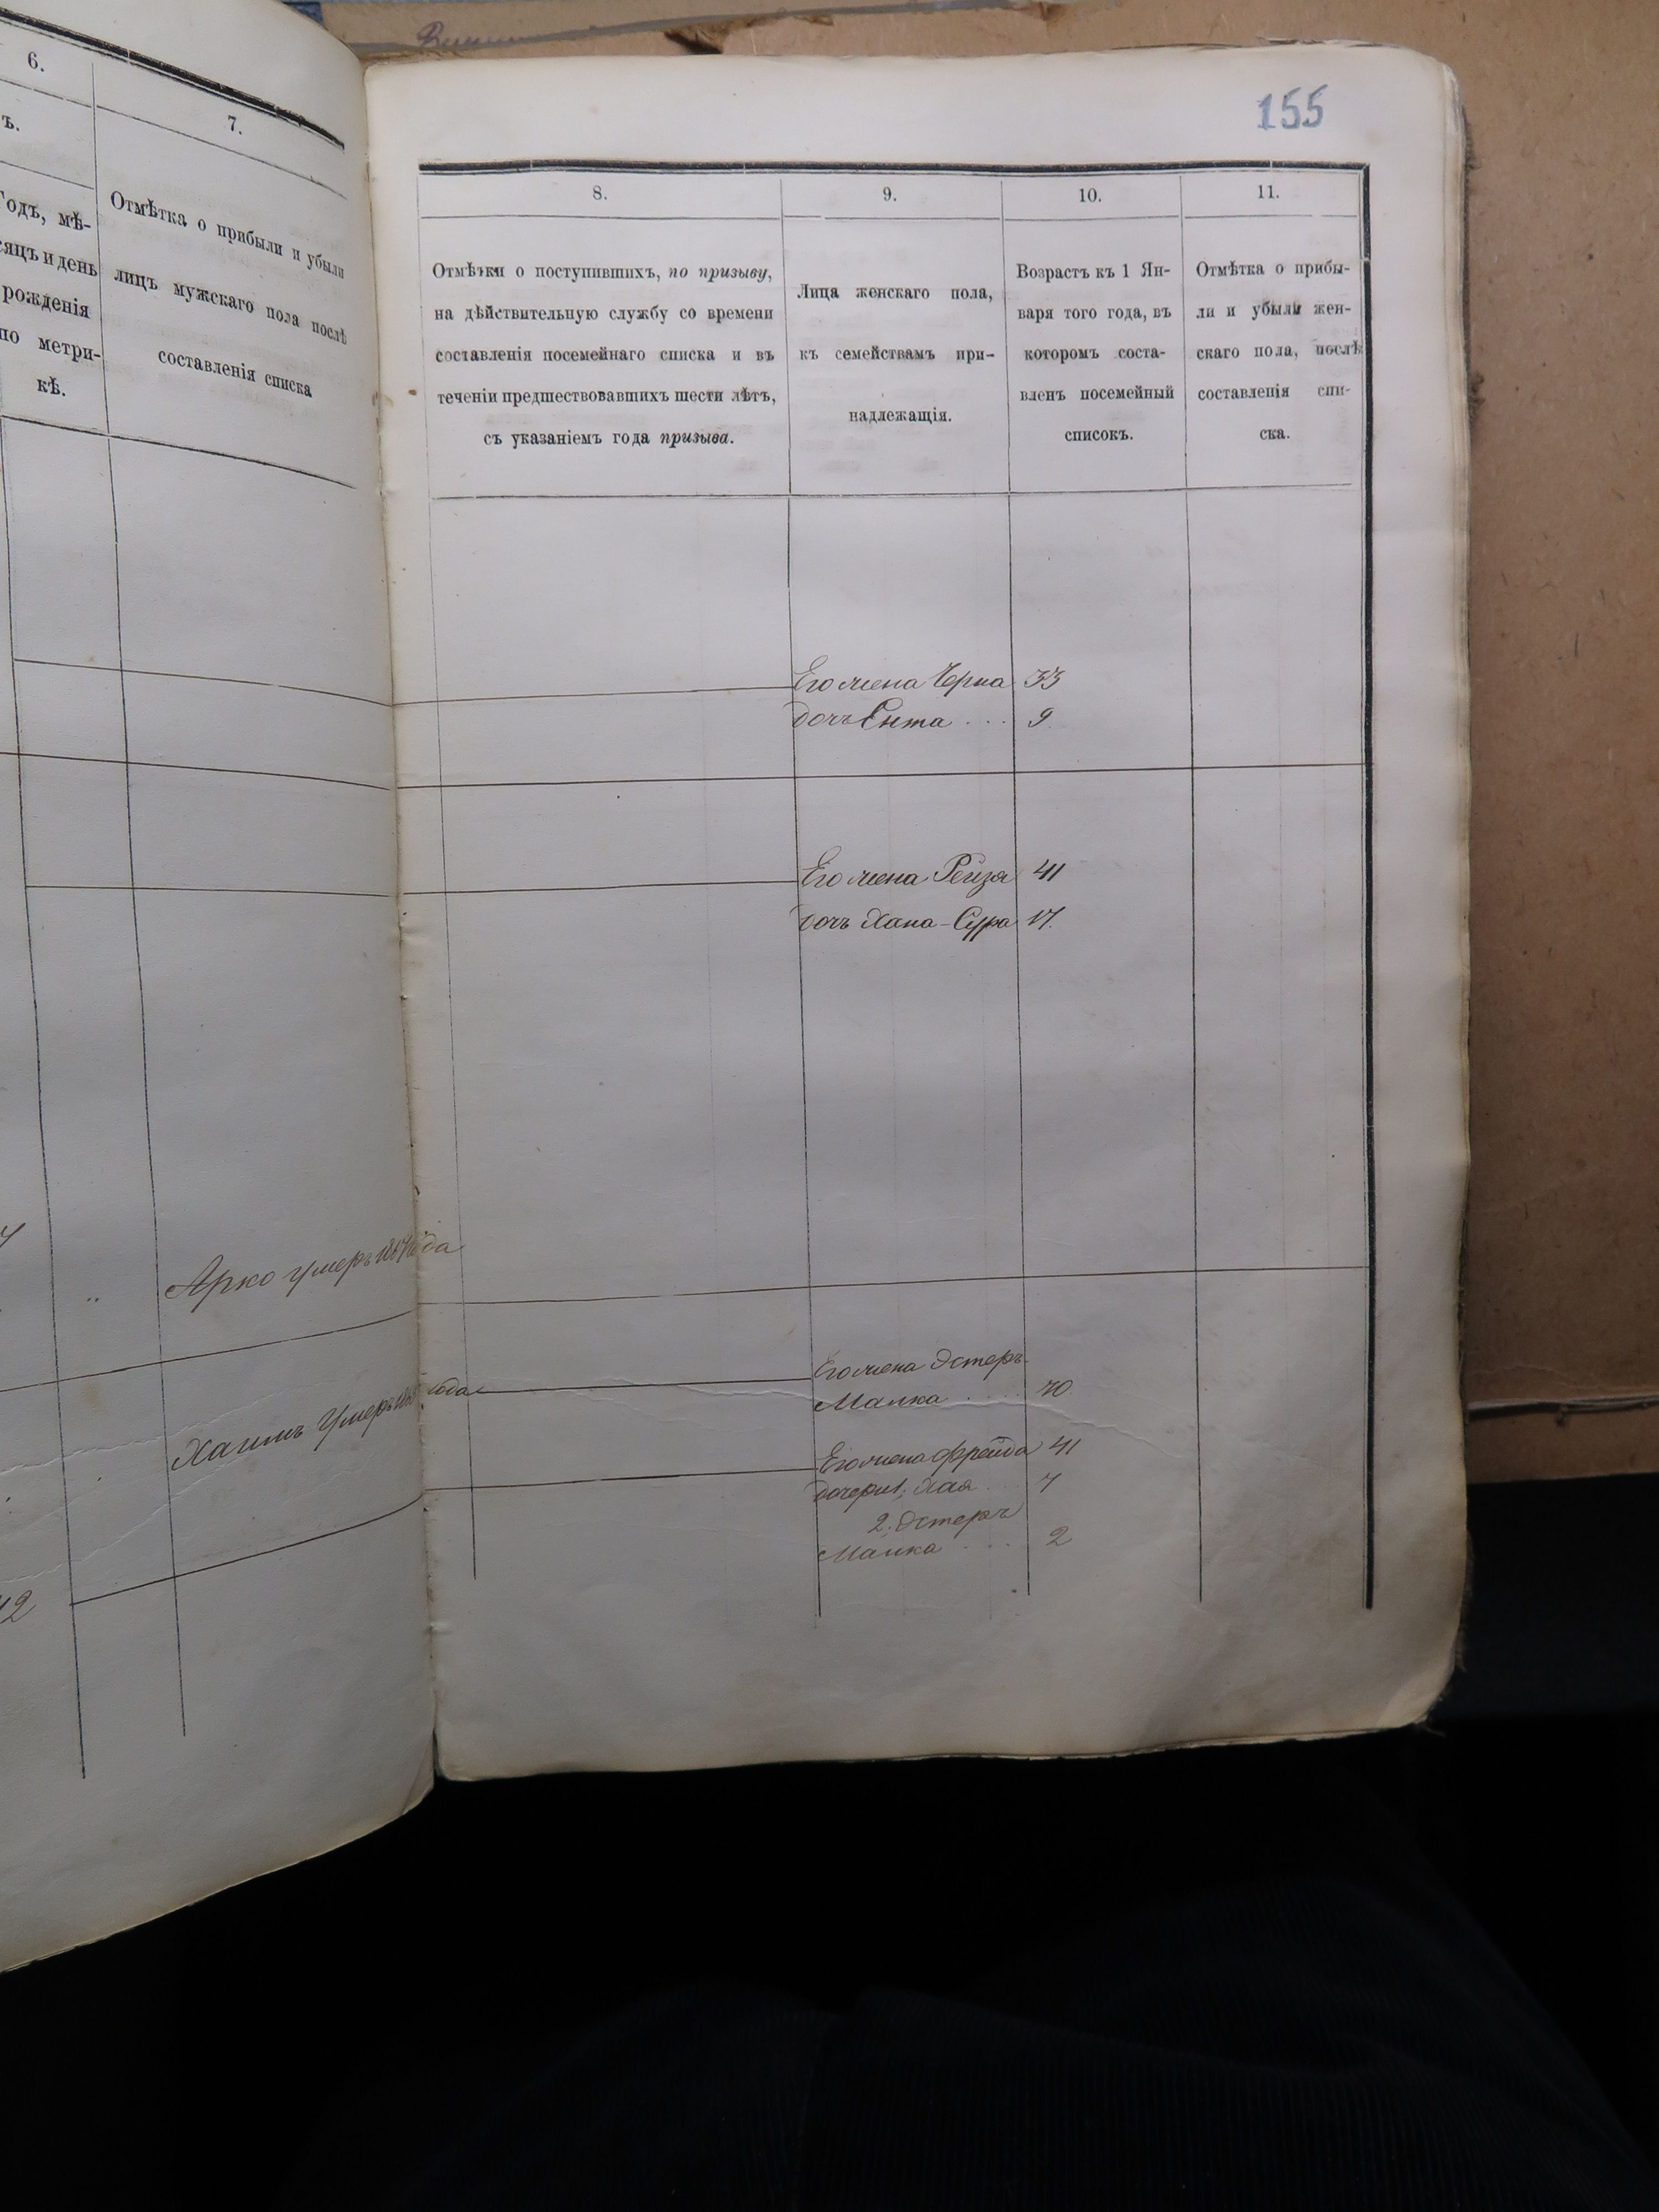 6.
ъ.
Годъ, мѣ-
сяцъ и день
рожденія
по метри-
кѣ.
7.
Отмѣтка о прибыли и убыли
лицъ мужскаго пола послѣ
составленія списка
Арко умеръ года
Хаимъ Умеръ года
12
155
8.
Отмѣтки о поступившихъ, по призыву,
на дѣйствительную службу со времени
составленія посемейнаго списка и въ
теченіи предшествовавшихъ шести лѣтъ,
съ указаніемъ года призыва.
9.
Лица женскаго пола,
къ семействамъ при-
надлежащія.
10.
Возрастъ къ 1 Ян-
варя того года, въ
которомъ соста-
вленъ посемейный
списокъ.
11.
Отмѣтка о прибы-
ли и убыли жен-
скаго пола, послѣ
составленія спи-
ска.
Его жена Черна 33
дочь Ента . . . 9
Его жена Рейза 41
дочь Хана-Сура 17.
Его жена Эстеръ-
Малка . . . . 70
Его жена Фрейда 41
дочери 1, Хая . . 7
2. Эстеръ
Малка . . . 2